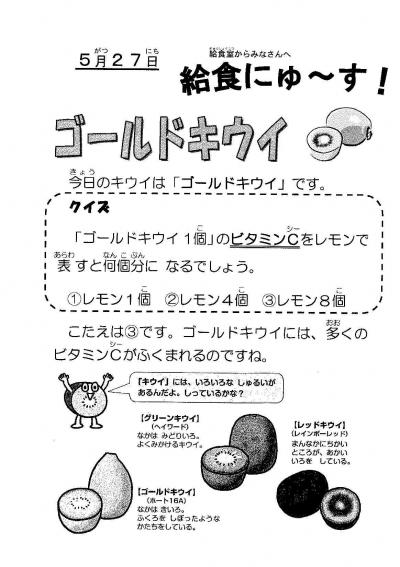 5月27日
給食室からみなさんへ
給食にゅ～す！
ゴールドキウイ
今日のキウイは「ゴールドキウイ」です。
クイズ
「ゴールドキウイ1個」のビタミンCをレモンで
表すと何個分に なるでしょう。
①レモン1個 ②レモン4個 ③レモン8個
こたえは③です。ゴールドキウイには、多くの
ビタミンCがふくまれるのですね。
「キウイ」には、いろいろな しゅるいが
あるんだよ。しっているかな？
【グリーンキウイ】
（ヘイワード）
なかは みどりいろ。
よくみかけるキウイ。
【レッドキウイ】
（レインボーレッド）
まんなかにちかい
ところが、あかい
いろを している。
【ゴールドキウイ】
（ホート16A）
なかは きいろ。
ふくろを しぼったような
かたちをしている。